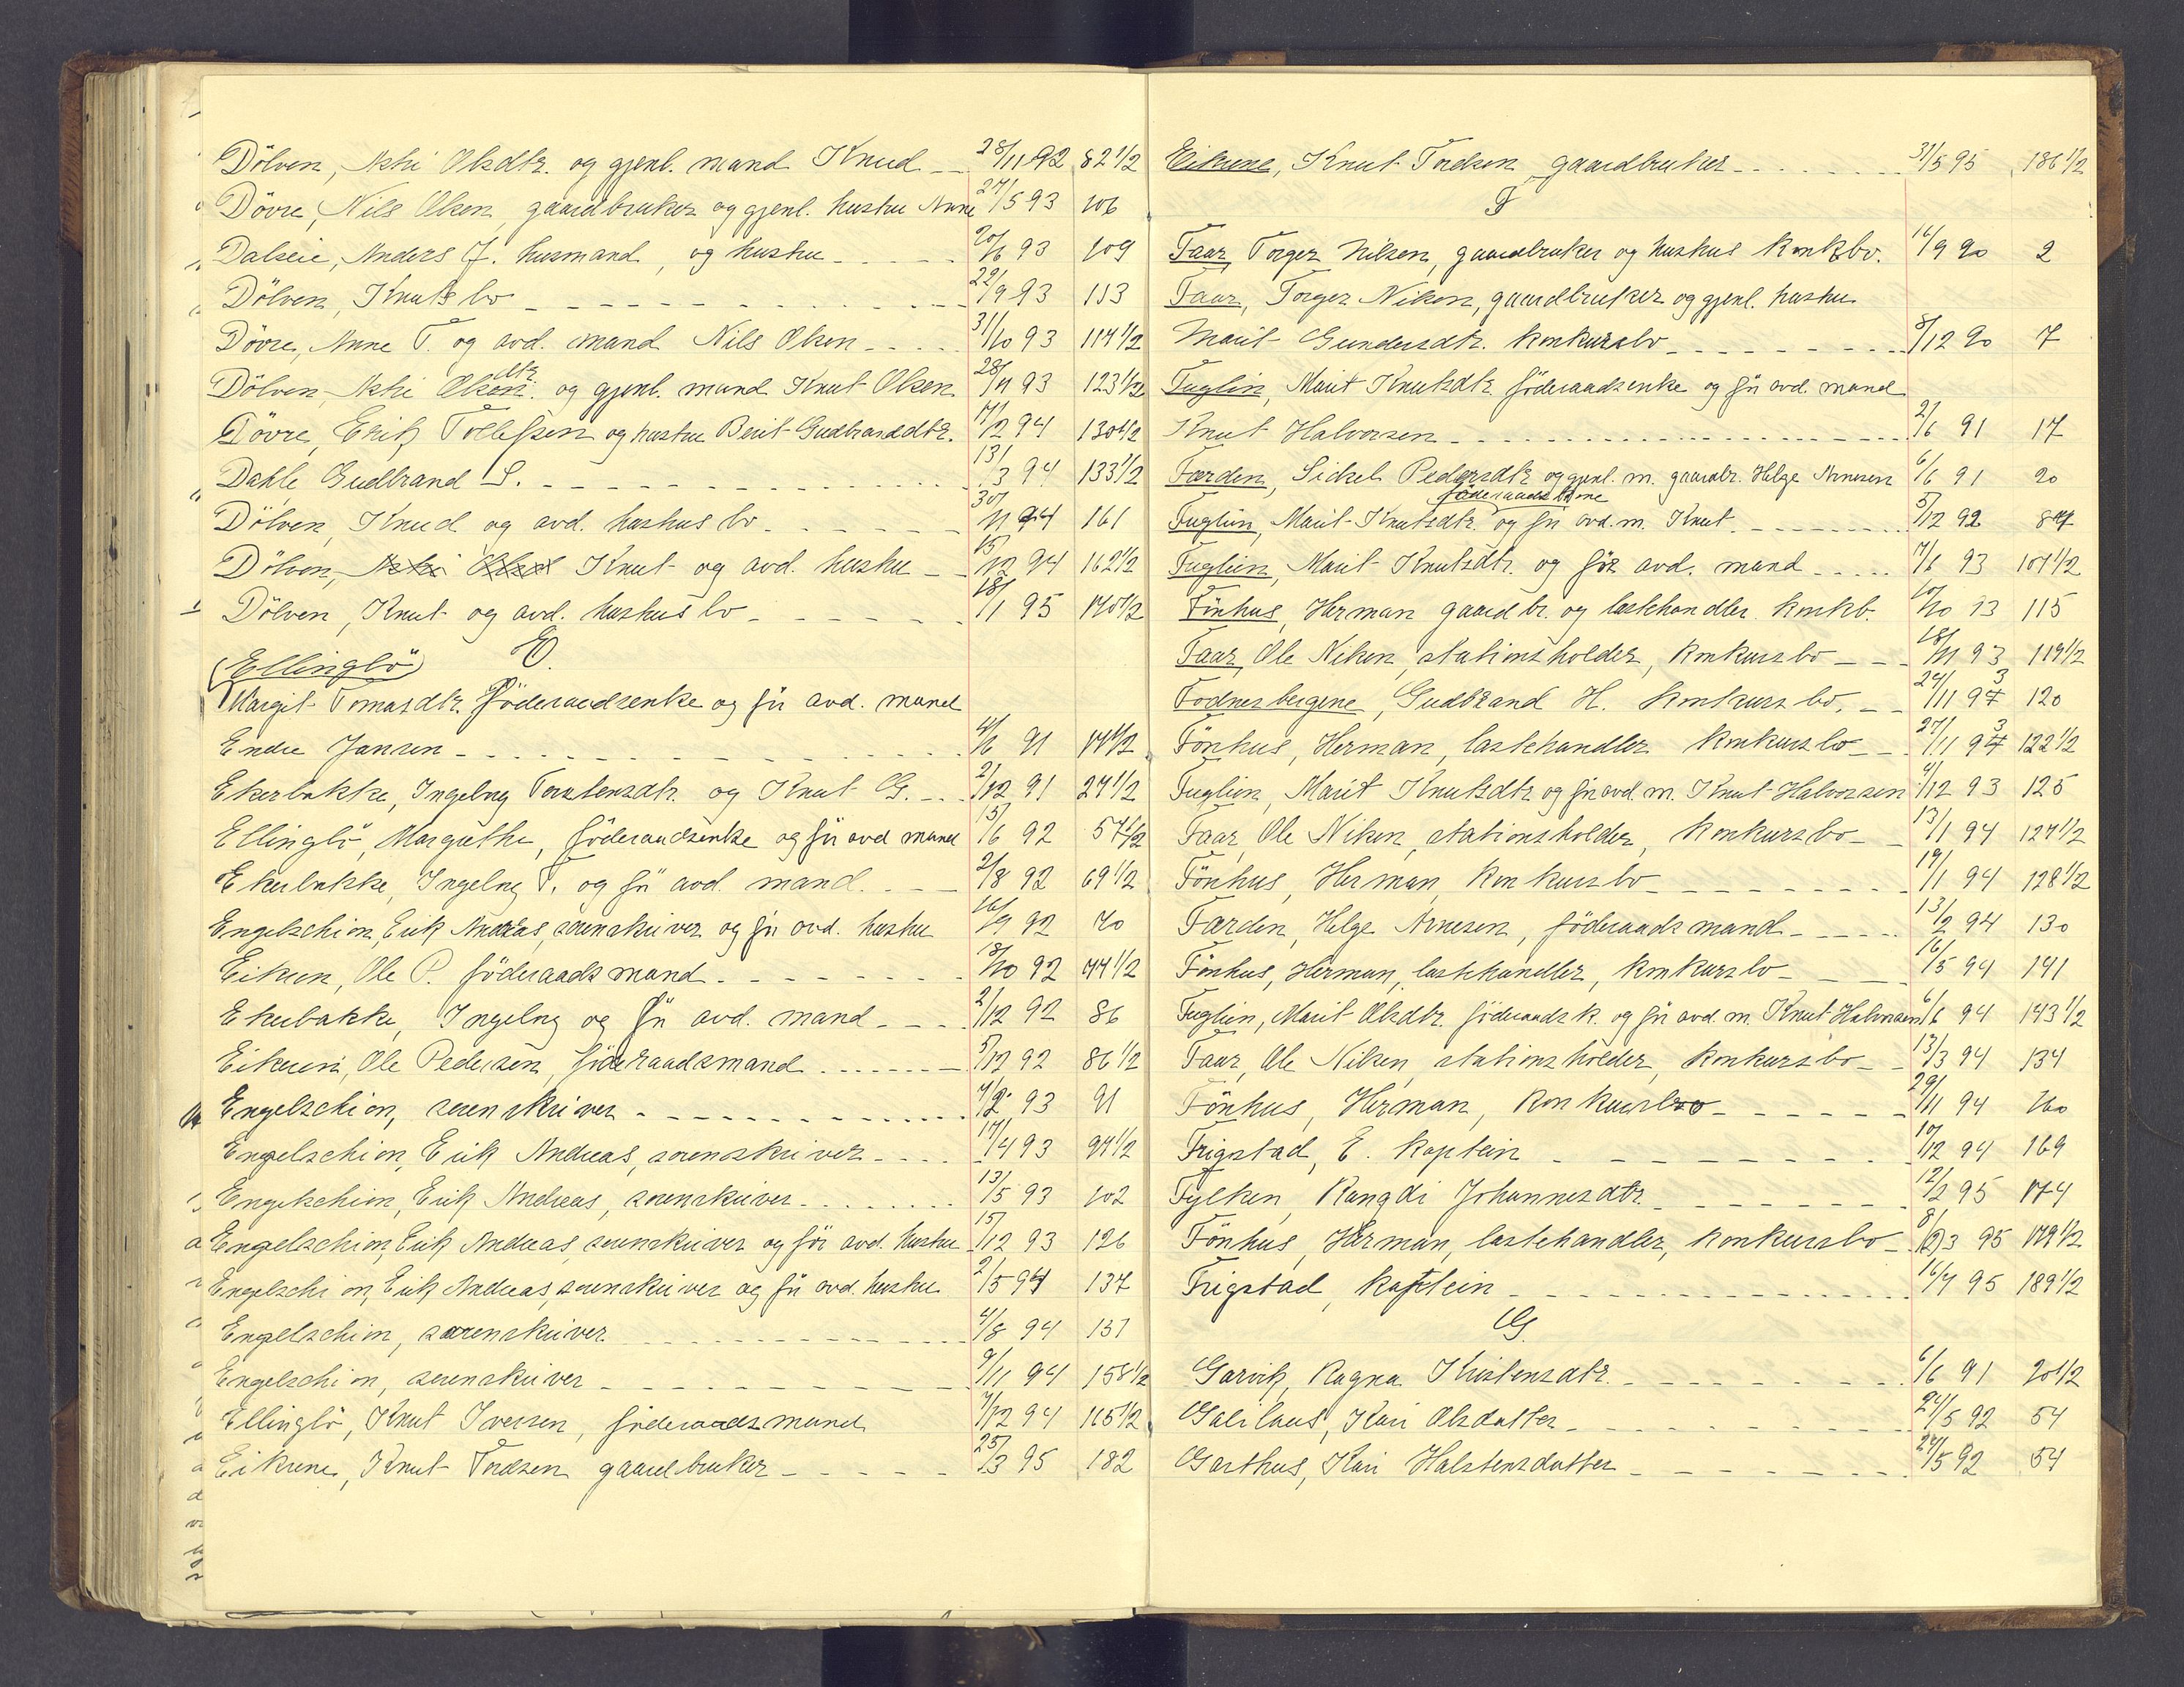 Dölven, Aslri Olsdtr. og gjenl. mand Knud 28/11 92 82 1/2
Dövre, Nils Olsen, gaardbruker og gjenl. hustru Anne 27/5 93 106
Dalseie, Anders J. husmand, og hustru 20/6 93 109
Dölven, Knuts bo 22/9 93 113
Dövre, Anne T. og avd. mand Nils Olsen 31/10 93 114 1/2
Dölven, Olsdtr. og gjenl. mand Knut Olsen 28/11 93 123 1/2
Dövre, Erik Tollefsen og hustru Berit Gudbrandsdtr. 17/2 94 130 1/2
Dahle Gudbrand S. 13/3 94 133 1/2
Dölven, Knud og avd. hustrus bo 30/11 94 161
Dölven, Knut og avd. hustru 15/12 94 162 1/2
Dölven, Knut og avd. hustrus bo 18/1 95 170 1/2
E.
(Ellinglö)
Margit Tomasdtr. föderaadsenke og før avd. mand
Endre Jansen 4/6 91 17 1/2
Ekerbakke, Ingebrg Torstensdtr. og Knut G. 2/12 91 27 1/2
Ellinglö, Margrethe, föderaadsenke og før avd mand 15/6 92 57 1/2
Ekerbakke, Ingebrg T. og før avd. mand. 2/8 92 69 1/2
Engelschiøn, Erik Andreas, sorenskriver og før avd. hustru 16/9 92 70
Eikren, Ole P. föderaadsmand 18/10 92 77 1/2
Ekerbakke, Ingebrg og før avd. mand 2/12 92 86
Eikren, Ole Pedersen, föderaadsmand 5/12 92 86 1/2
Engelschiøn, sorenskriver 7/2 93 91
Engelschiøn, Erik Andreas, sorenskriver 17/4 93 97 1/2
Engelschiøn, Erik Andreas, sorenskriver 13/5 93 102
Engelschiøn, Erik Andreas, sorenskriver og før avd. hustru 15/12 93 126
Engelschiøn, Erik Andreas, sorenskriver og før avd. hustru 2/5 94 137
Engelschiøn, sorenskriver 4/8 94 151
Engelschiøn, sorenskriver 9/11 94 158 1/2
Ellinglö, Knut Iversen, föderaadsmand 7/12 94 165 1/2
Eikrene, Knut Tordsen gaardbruker 25/3 95 182
Eikrene, Knut Tordsen gaardbruker 31/5 95 186 1/2
F
Faar, Torger Nilsen, gaardbruker og hustrus konk.bo. 16/9 90 2
Faar, Torger Nilsen, gaardbruker og gjenl. hustru
Marit Gundersdtr. konkursbo 8/12 90 7
Fuglin, Marit Knutsdtr. föderaadsenke og før avd. mand
Knut Halvorsen 2/6 91 17
Færden, Sidsel Pedersdtr. og gjenl. m. gaardbr. Helge Arnesen 6/6 91 20
föderaadskone
Fuglin, Marit Knutsdtr. og før avd. m. Knut 5/12 92 87
Fuglien, Marit Knutsdtr. og før avd. mand 7/6 93 107 1/2
Fönhus, Herman gaardbr. og lastehandler konkb. 10/10 93 115
Faar, Ole Nilsen, stationsholder, konkursbo 18/11 93 119 1/2
Fodnesbergene, Gudbrand H. konkursbo. 24/11 93 120
Fönhus, Herman, lastehandler konkursbo 27/11 93 122 1/2
Fuglien, Marit Knutsdtr. og før avd. m. Knut Halvorsen 4/12 93 125
Faar, Ole Nilsen, stationsholder, konkursbo 13/1 94 127 1/2
Fönhus, Herman, konkursbo 19/1 94 128 1/2
Færden, Helge Arnesen, föderaadsmand 13/2 94 130
Fönhus, Herman, lastehandler, konkursbo 16/5 94 141
Fuglien, Marit Olsdtr. föderaadsk. og før avd. m. Knut Halvorsen 6/6 94 143 1/2
Faar, Ole Nilsen, stationsholder, konkursbo 13/3 94 134
Fönhus, Herman, konkursbo 29/11 94 160
Frigstad, E. kaptein 17/12 94 169
Fylken, Rangdi Johannesdtr. 12/2 95 174
Fönhus, Herman, lastehandler, konkursbo 8/3 95 179 1/2
Frigstad, kaptein 16/7 95 189 1/2
G.
Garvik, Ragna Kristensdtr. 6/6 91 20 1/2
Galilaus, Kari Olsdatter 24/5 92 54
Garthus, Kari Halstensdatter 24/5 92 54